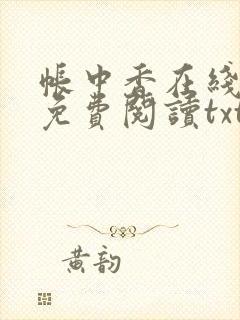 帳中香在綫
免費閱讀txt
黃韵